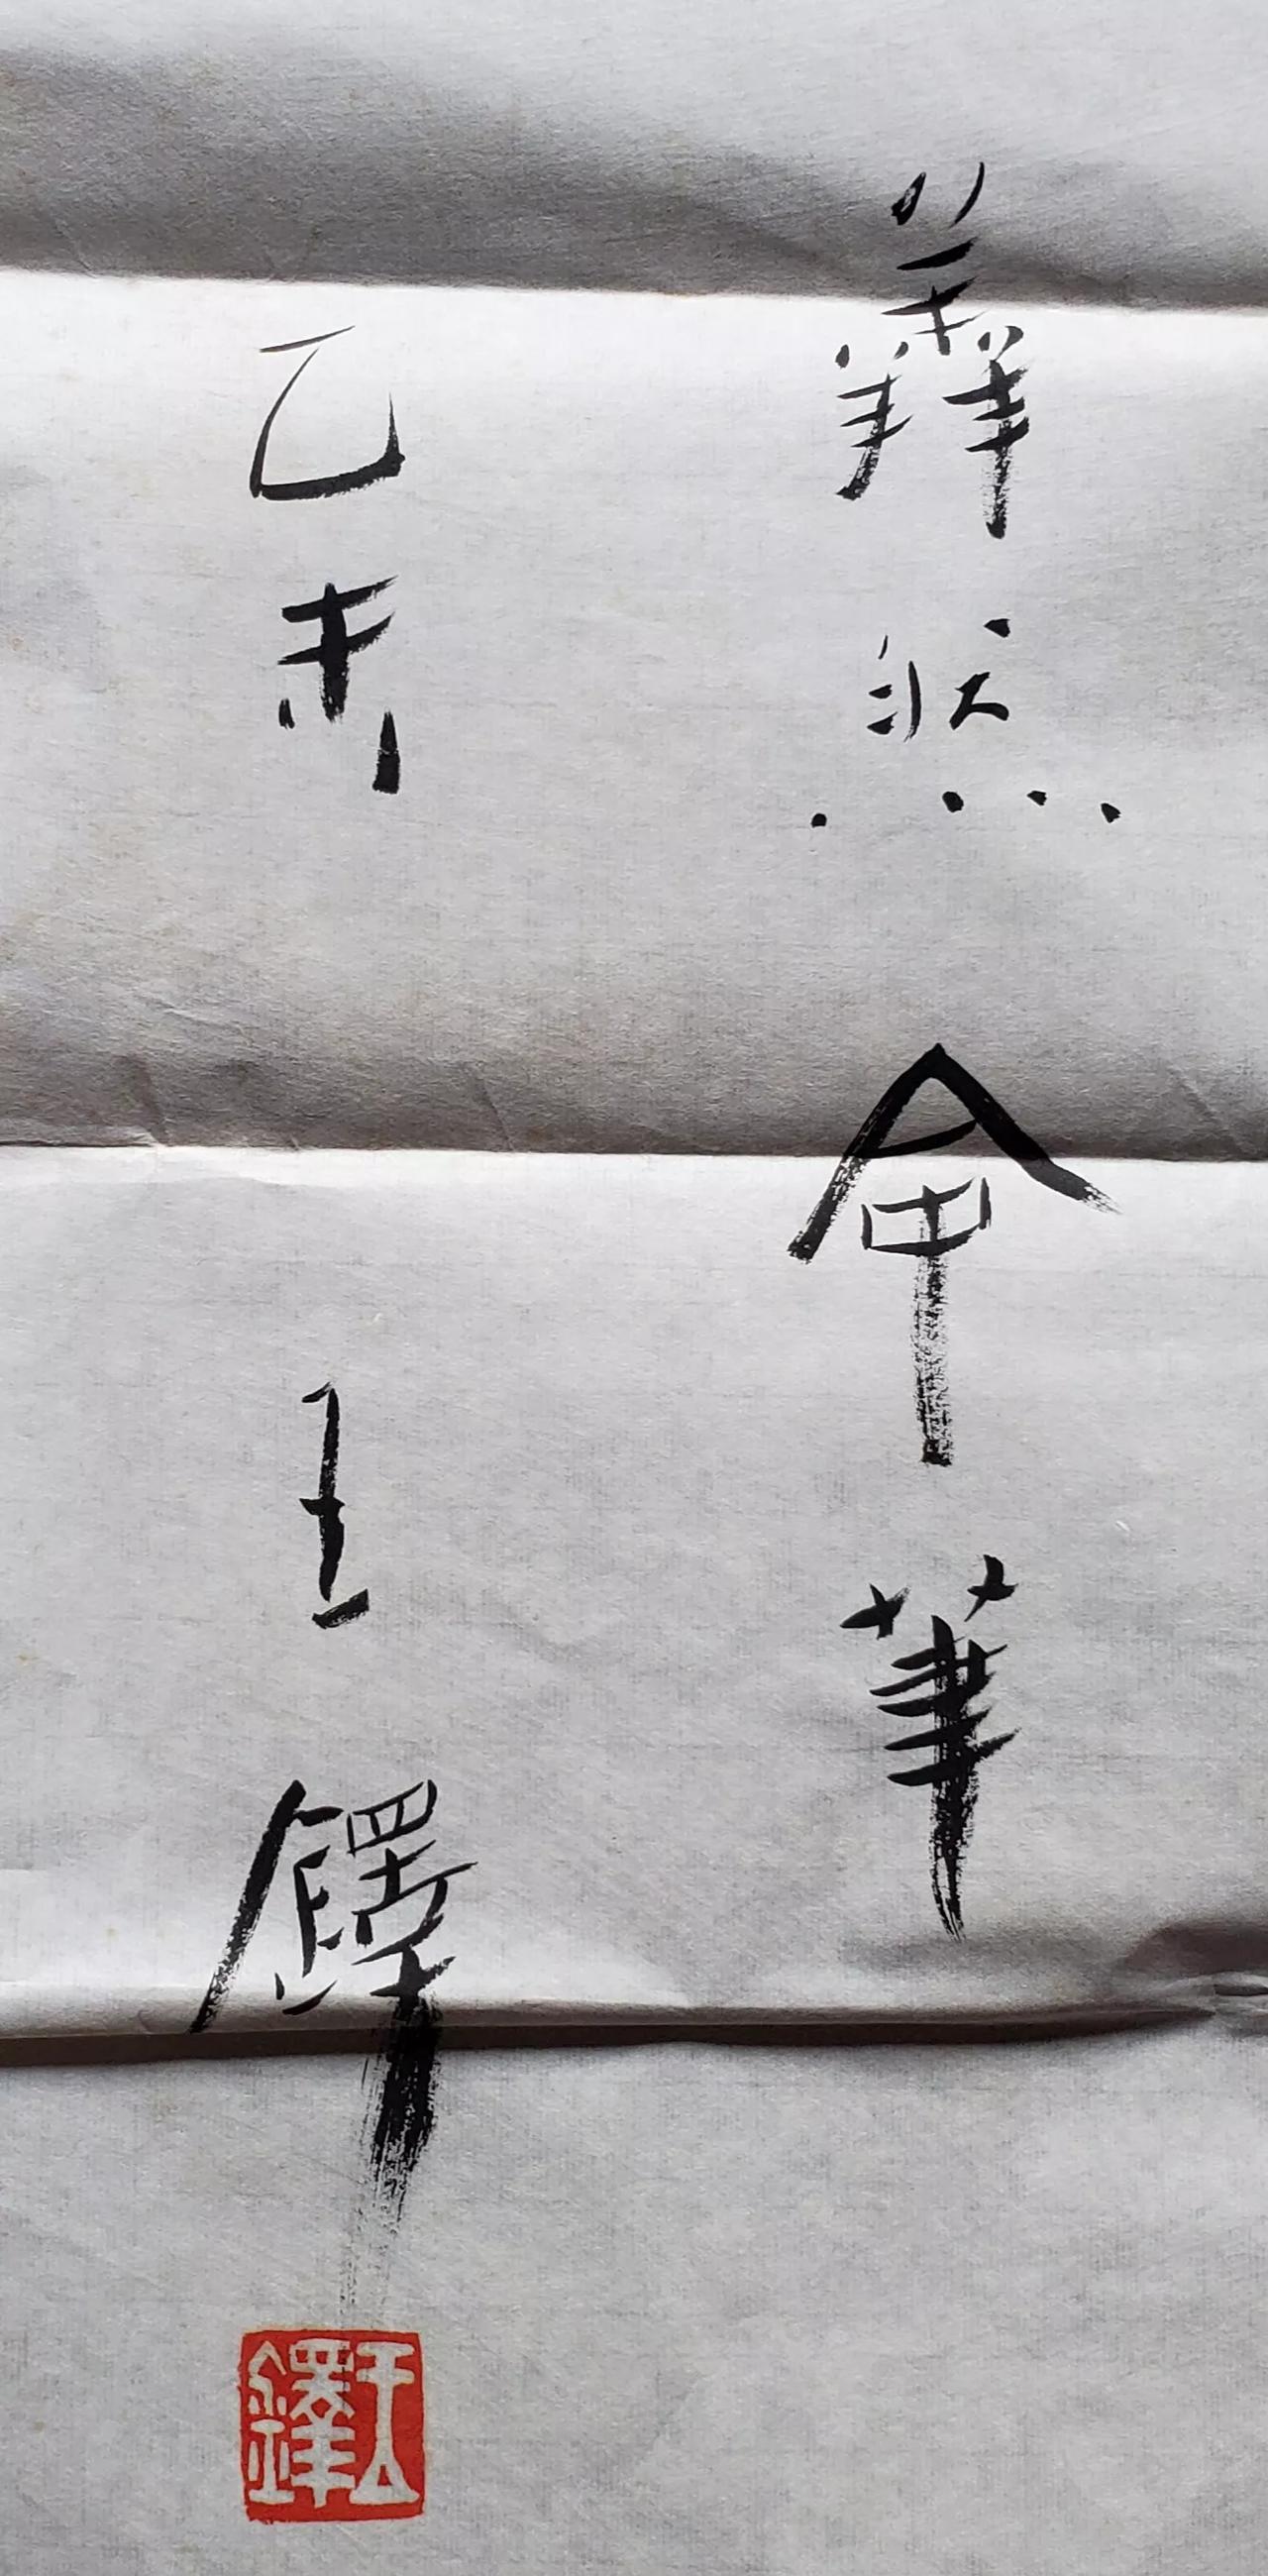 羴然命筆
乙未 王鐸
王鐸